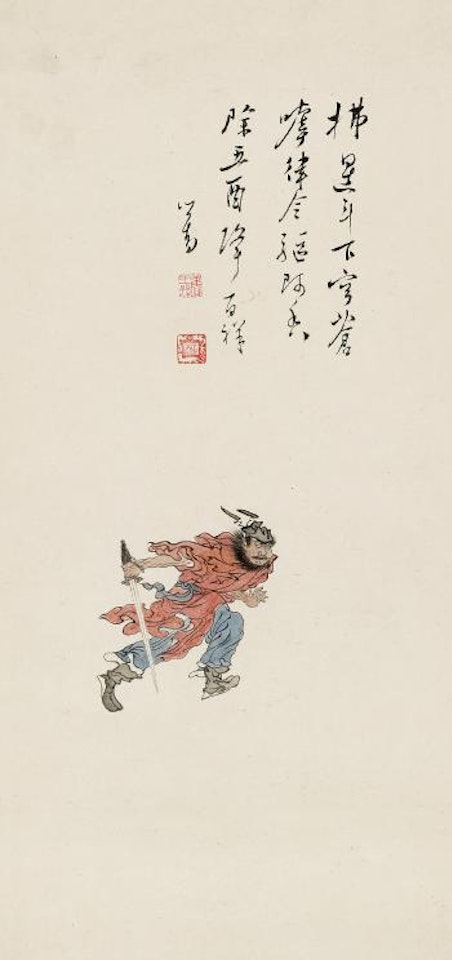 拂星斗下穹蒼
嘑律令驅阿香
除五酉降百祥
心畬